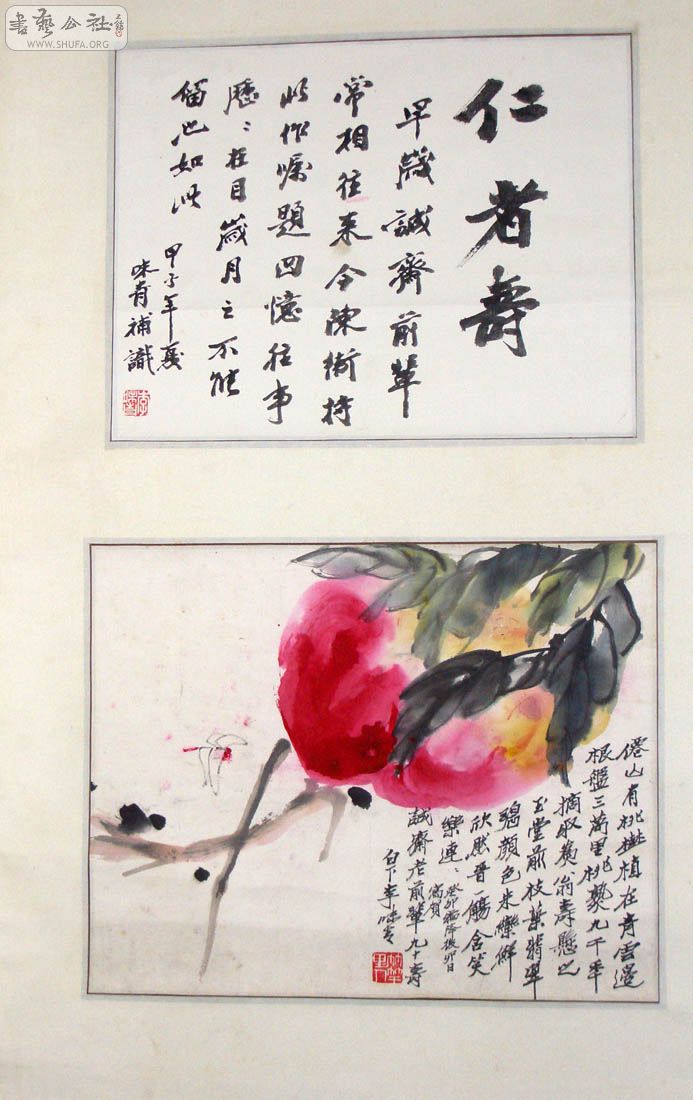 書藝公社
WWW.SHUFA.ORG
仁者壽
早歲誠齋前輩
常相往来今陳衛持
此作嘱題回憶往事
歷〻在目歲月之不能
留也如此
甲子年夏
味青補識
僊山有桃樹植在青雲邊
根盤三萬里桃熟九千年
摘取為翁壽懸之
玉堂前枝葉翡翠
碧顏色朱欒鮮
欣然晋一觴含笑
樂連〻癸卯霜降後卯日
寫賀
誠齋老前輩九十壽
白下李味青